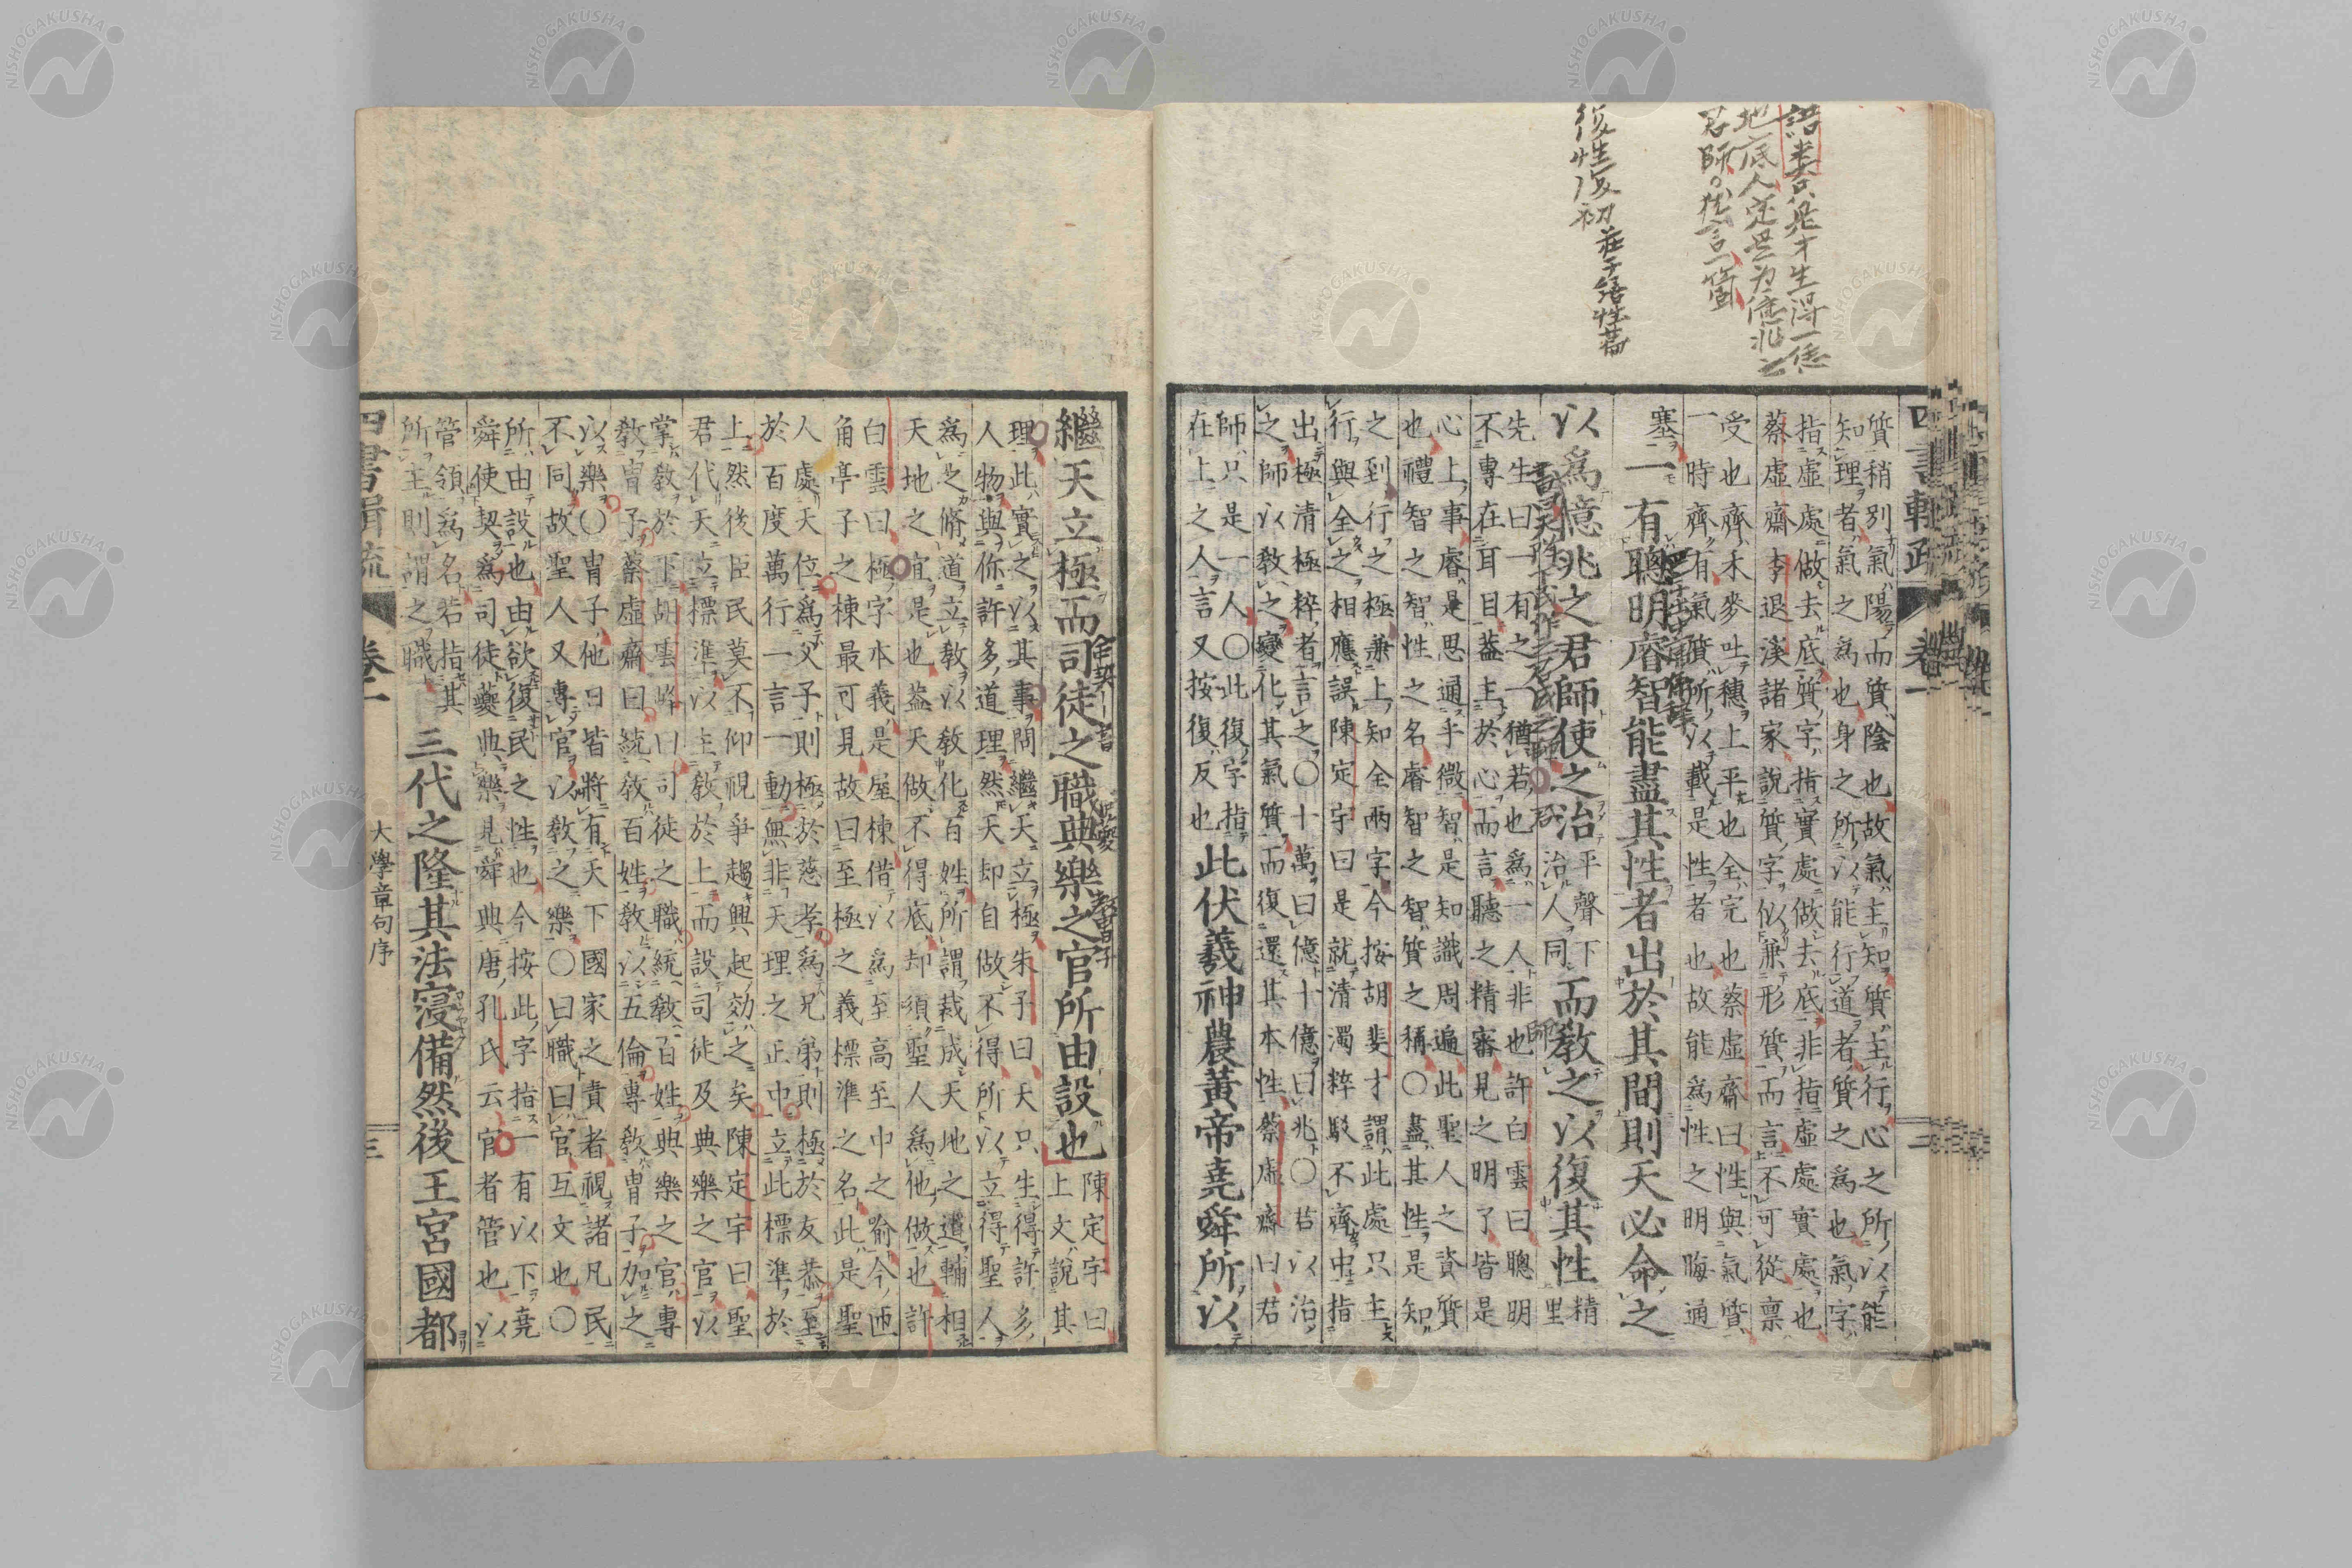 語類 只是才生得一恁
地底人定是為億兆之
君師。猶言一箇
復性復初 莊子繕性篇
四書輯疏 卷一 二
質稍別氣陽而質陰也故氣主知質主行心之所以能
知理者氣之爲也身之所以能行道者質之爲也氣字
指虛處做去底質字指實處做去底非指虛處實處也
蔡虛齋李退溪諸家說質字似兼形質而言不可從禀
受也齊禾麥吐穗上平也全完也蔡虛齋曰性與氣質
一時齊有氣質所以載是性者也故能爲性之明晦通
塞一有聰明睿智能盡其性者出於其間則天必命之
以爲億兆之君師使之治平聲下治人同而教之以復其性精里
先生曰一有之一猶若也爲一人非也許白雲曰聰明
不專在耳目蓋主於心而言聽之精審見之明了皆是
心上事睿是思通乎微智是知識周遍此聖人之資質
也禮智之智性之名睿智之智質之稱〇盡其性是知
之到行之極兼上知全兩字今按胡斐才謂此處只主
行與全之相應誤陳定宇曰是就清濁粹駁不齊中指
出極清極粹者言之〇十萬曰億十億曰兆〇若以治
之師以教之變化其氣質而復還其本性蔡虛齋曰君
師只是一人〇此復字指
在上之人言又按復反也
此伏羲神農黃帝堯舜所以
繼天立極而司徒之職典樂之官所由設也
陳定宇曰
上文說其
理此實之以其事問繼天立極朱子曰天只生得許多
人物與你許多道理然天却自做不得所以立得聖人
爲之脩道立教以教化百姓所謂裁成天地之道輔相
天地之宜是也蓋天做不得底却須聖人爲他做也許
白雲曰極字本義是屋棟借以爲至高至中之喻今匝
角亭子之棟最可見故曰至極之義標準之名此是聖
人處天位爲父子則極於慈孝爲兄弟則極於友恭至
於百度萬行一言一動無非天理之正中立此標準於
上然後臣民莫不仰視爭趨興起効之矣陳定宇曰聖
君代天立標準以主教於上而設司徒及典樂之官以
掌教於下胡雲峰曰司徒之職統教百姓典樂之官專
教冑子蔡虛齋曰統教百姓教以五倫專教冑子加之
以樂〇冑子他日皆將有天下國家之責者視諸凡民
不同故聖人又專官以教之樂〇曰職曰官互文也〇
所由設也由欲復民之性也今按此字指一有以下堯
舜使契爲司徒夔典樂見舜典唐孔氏云官者管也以
管領爲名若指其
所主則謂之職
三代之隆其法寖備然後王宮國都
四書輯疏 卷一 大學章句序 三